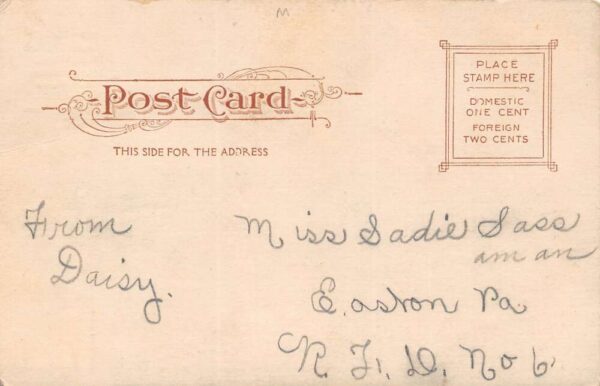 M
Post Card
THIS SIDE FOR THE ADDRESS
PLACE
STAMP HERE
DOMESTIC
ONE CENT
FOREIGN
TWO CENTS
From
Daisy.
Miss Sadie Sass
am an
Easton Pa
R. F. D. No 6